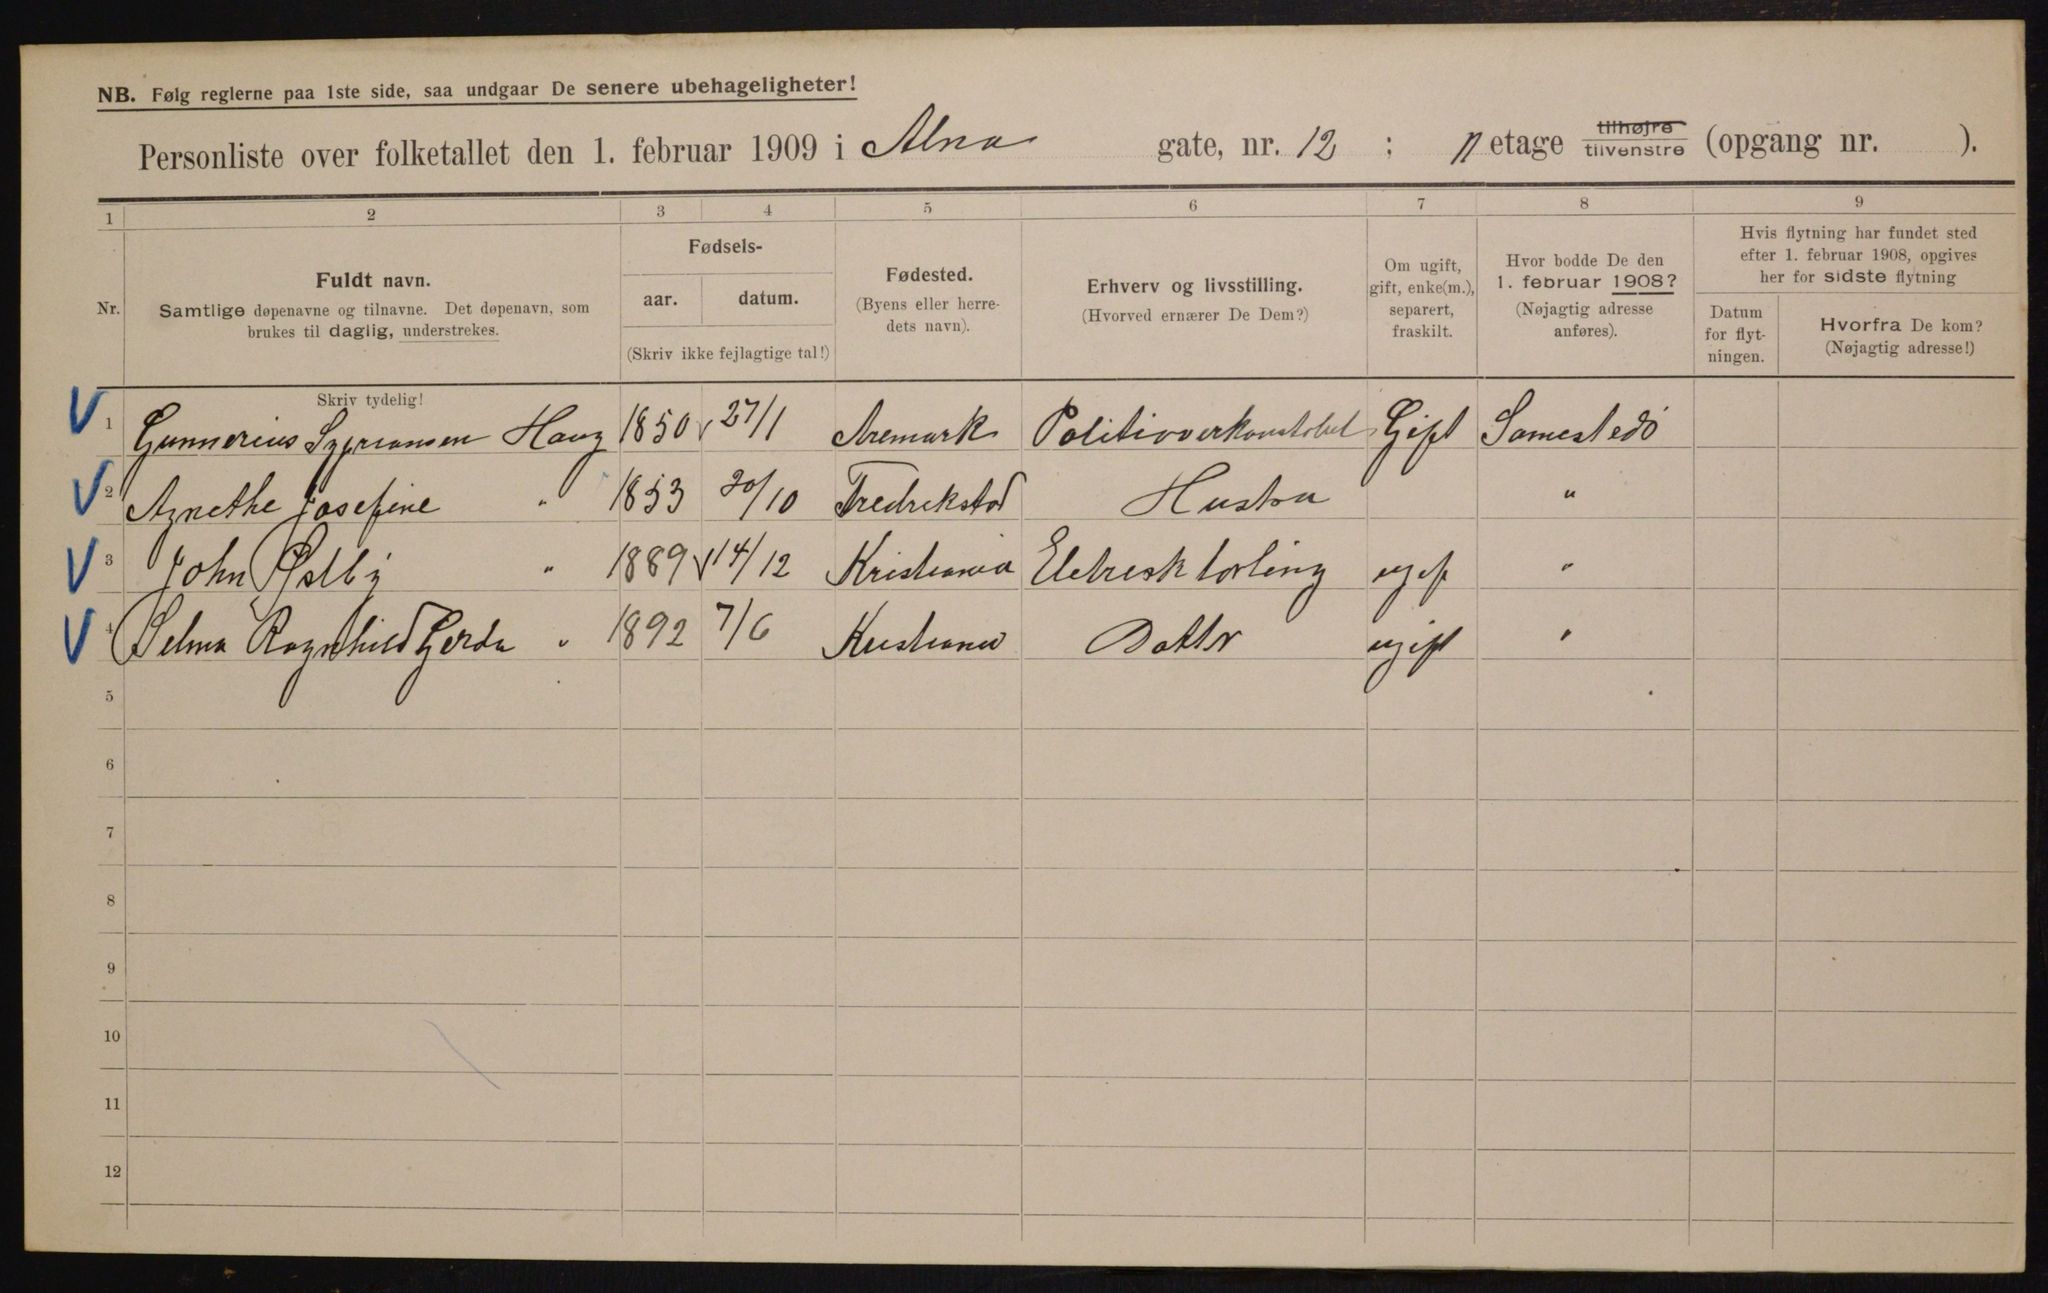 NB. Følg reglerne paa 1ste side, saa undgaar De senere ubehageligheter!
Personliste over folketallet den 1. februar 1909 i Alna gate, nr. 12 ; II etage tilhøjre tilvenstre (opgang nr. ).
1 2 3 4 5 6 7 8 9
Nr.
Fuldt navn.
Samtlige døpenavne og tilnavne. Det døpenavn, som
brukes til daglig, understrekes.
Fødsels-
aar. datum.
(Skriv ikke fejlagtige tal!)
Fødested.
(Byens eller herre-
dets navn).
Erhverv og livsstilling.
(Hvorved ernærer De Dem?)
Om ugift,
gift, enke(m.),
separert,
fraskilt.
Hvor bodde De den
1. februar 1908?
(Nøjagtig adresse
anføres).
Hvis flytning har fundet sted
efter 1. februar 1908, opgives
her for sidste flytning
Datum
for flyt-
ningen.
Hvorfra De kom?
(Nøjagtig adresse!)
Skriv tydelig!
V 1 Gunnerius Sypriansen Haug 1850 27/1 Aremark Politioverkonstabel Gift Samested
V 2 Agnethe Josefine " 1853 /10 Fredrikstad Hustru "
V 3 John Østby " 1889 14/12 Kristiania Eletrisk lørling ugif "
V 4 Selma Ragnhild Gerda " 1892 7/6 Kristiania Datter ugift "
5
6
7
8
9
10
11
12